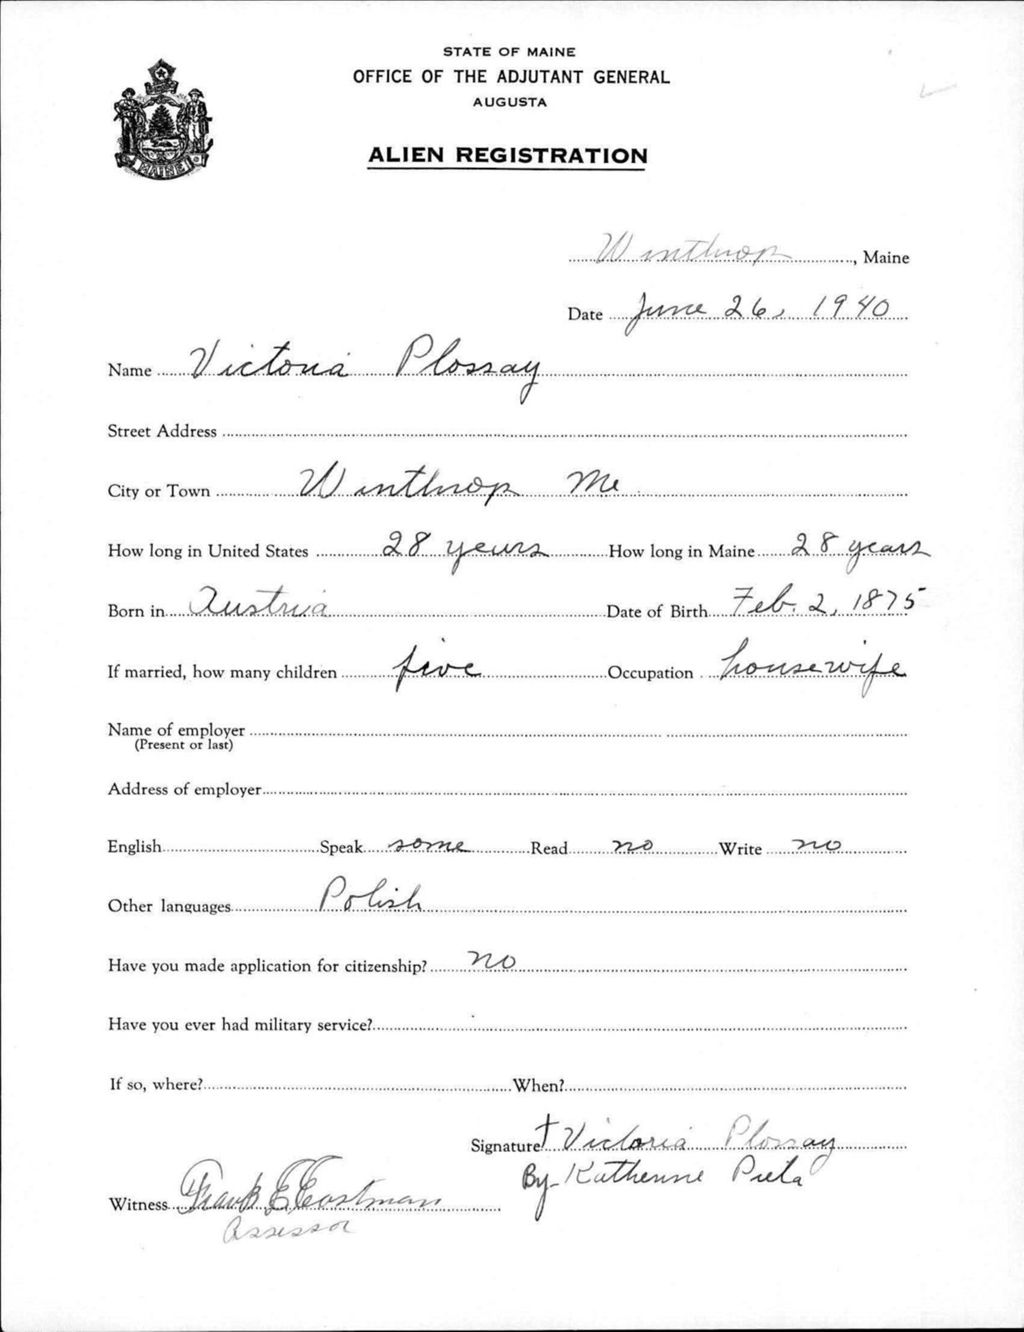 STATE OF MAINE
OFFICE OF THE ADJUTANT GENERAL
AUGUSTA
ALIEN REGISTRATION
MAINE
Winthrop, Maine
Date June 26, 1940
Name Victoria Plossay
Street Address
City or Town Winthrop Me.
How long in United States 28 years How long in Maine 28 years
Born in Austria Date of Birth Feb. 2, 1875
If married, how many children five Occupation housewife
Name of employer
(Present or last)
Address of employer
English Speak some Read no Write no
Other languages Polish
Have you made application for citizenship? no
Have you ever had military service?
If so, where? When?
Signature † Victoria Plossay
By-Katherine Piela
Witness Frank E Eastman
Assessor